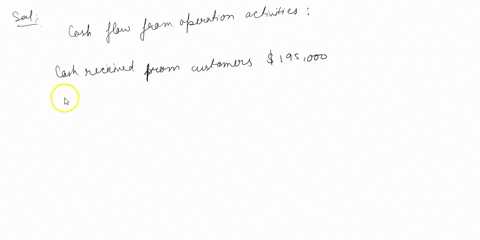 Sol:
Cash flow from operation activities :
Cash received from customers $ 195,000